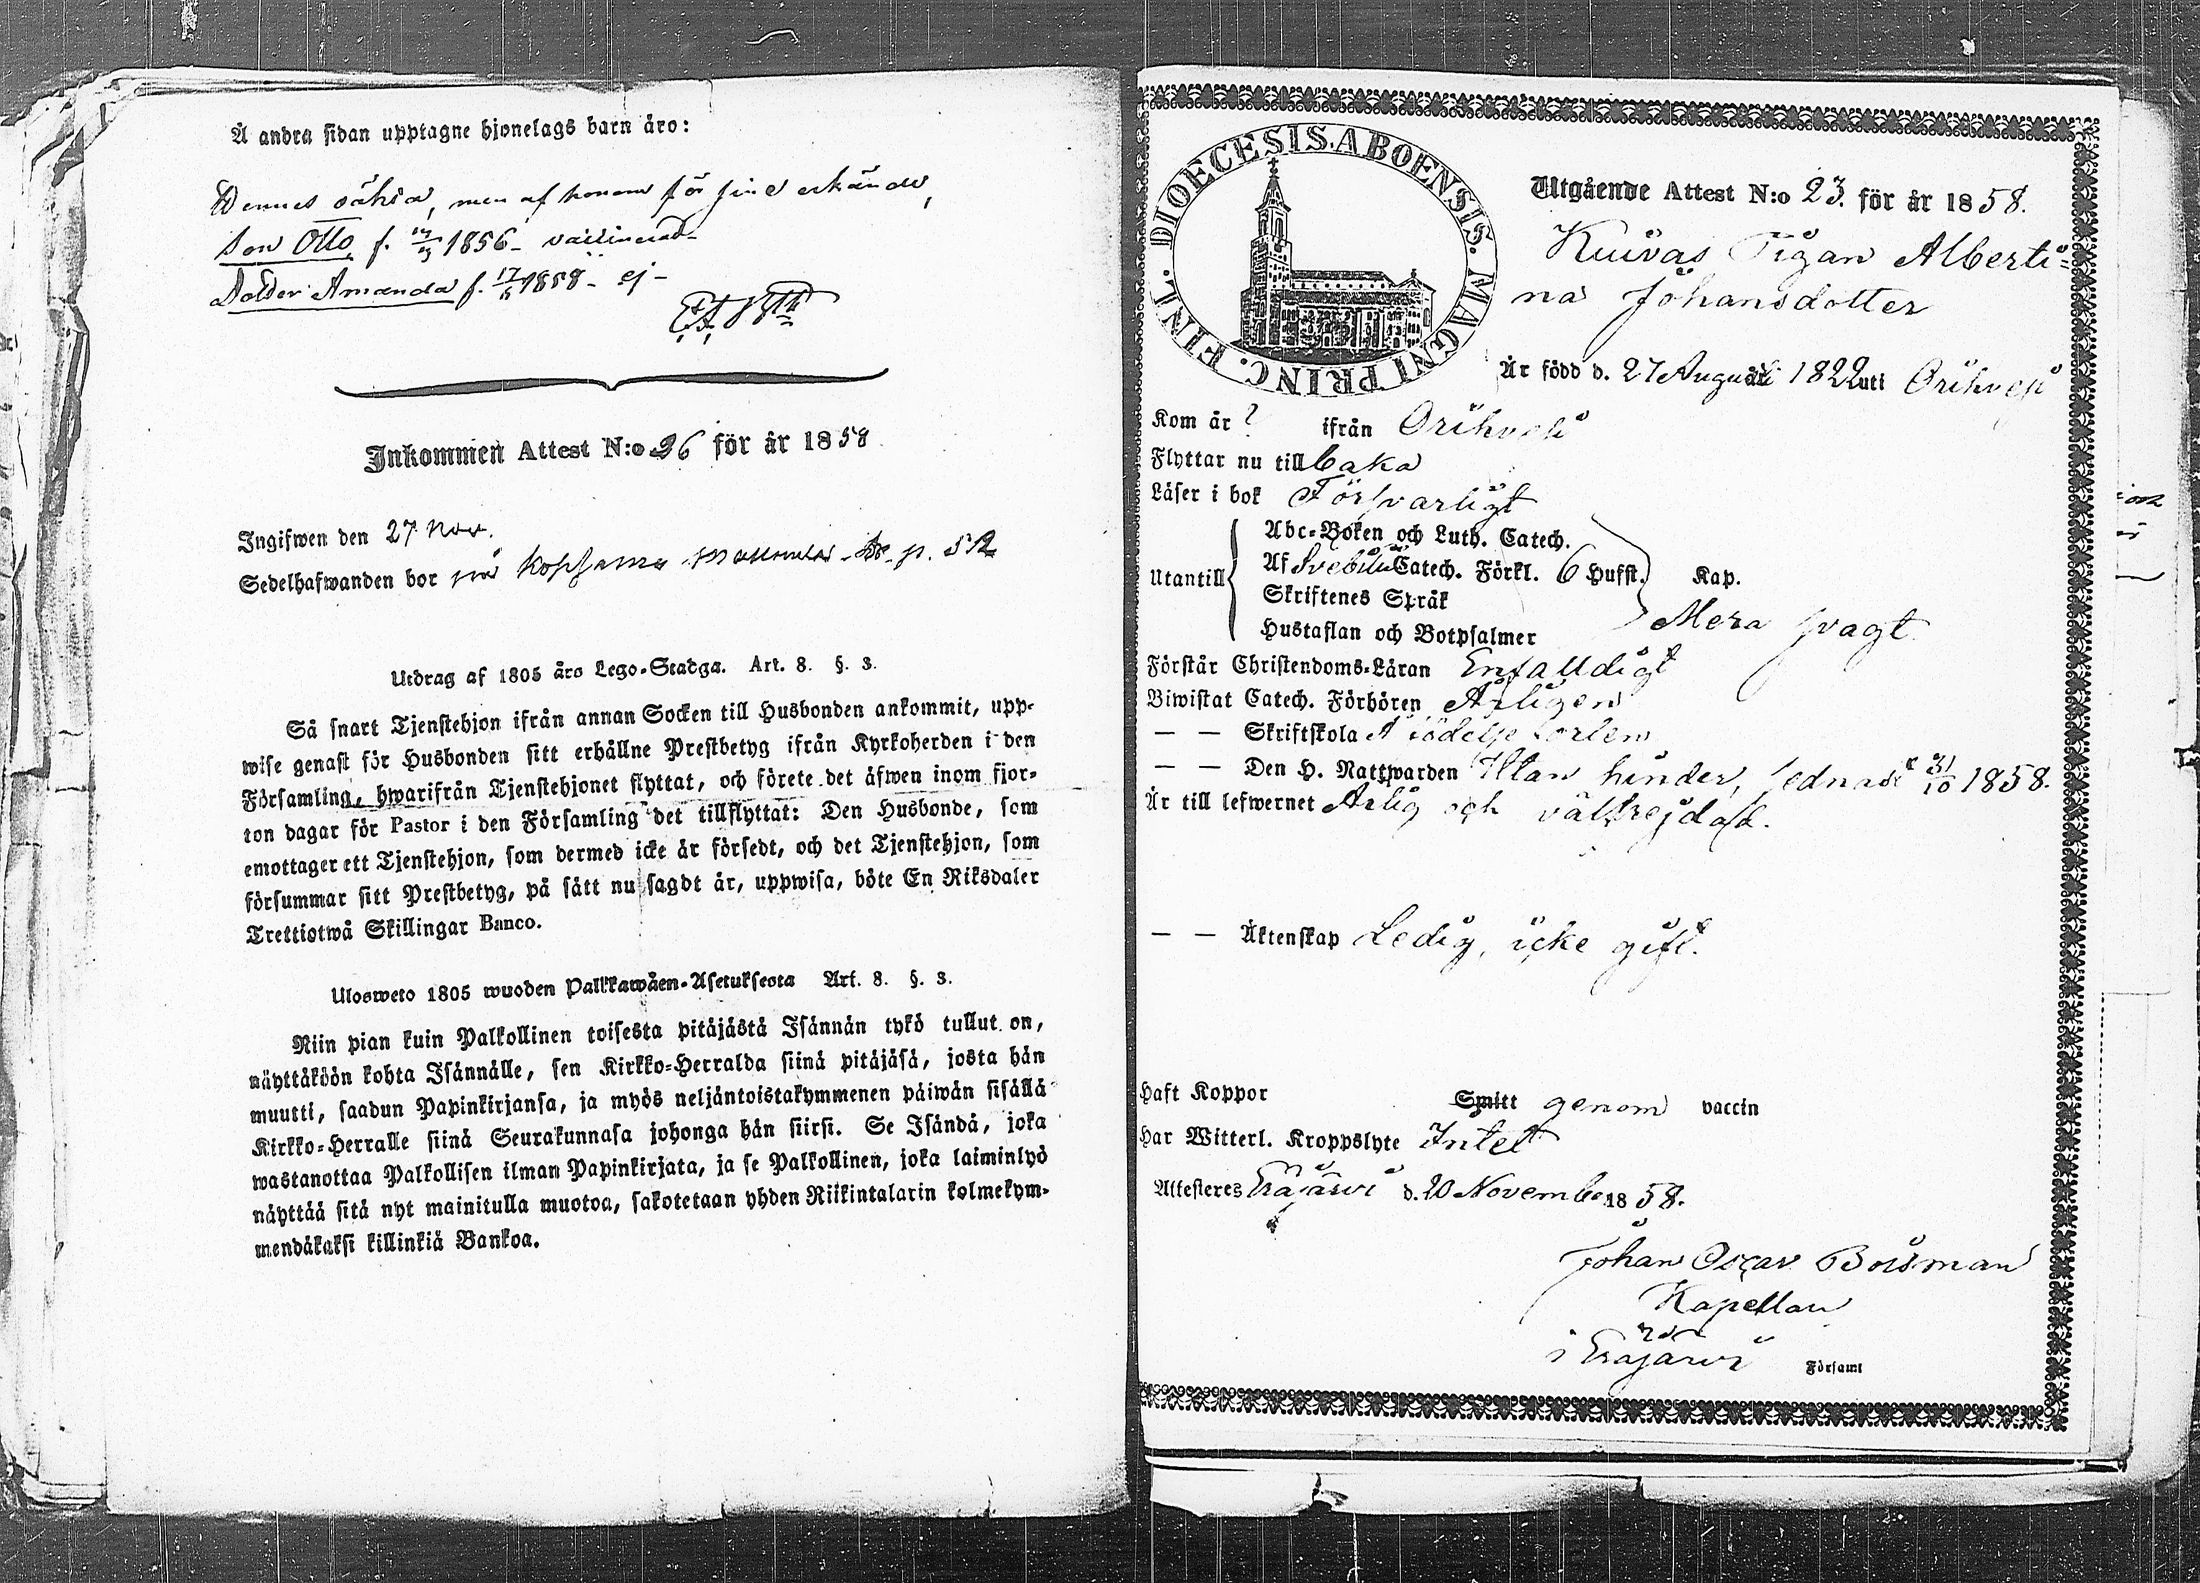 Å andra sidan upptagne hjonelags barn äro:
Dennes oäkta, men af honom för sine erkände,
Son Otto, f. 1856 - vaccinerad -
Dotter Amanda f. 17/5 1858 - ej -
Inkommen Attest N:o 26 för år 1858
Ingifwen den 27 Nov.
Sedelhafwanden bor på Kopsamo p. 512
Utdrag af 1805 års Lego-Stadga. Art. 8. §. 3.
Så snart Tjenstehjon ifrån annan Socken till Husbonden ankommit, upp-
wise genast för Husbonden sitt erhållne Prestbetyg ifrån Kyrkoherden i den
Församling, hwarifrån Tjenstehjonet flyttat, och förete det äfwen inom fjor-
ton dagar för Pastor i den Församling det tillflyttat: Den Husbonde, som
emottager ett Tjenstehjon, som dermed icke är försedt, och det Tjenstehjon, som
försummar sitt Prestbetyg, på sätt nu sagdt är, uppwisa, böte En Riksdaler
Trettiotwå Skillingar Banco.
Ulosweto 1805 wuoden Palkkawäen-Asetuksesta Art. 8. §. 3.
Niin pian kuin Palkollinen toisesta pitäjästä Isännän tykö tullut on,
näyttäköön kohta Isännälle, sen Kirkko-Herralda siinä pitäjäsä, josta hän
muutti, saadun Papinkirjansa, ja myös neljäntoistakymmenen päiwän sisällä
Kirkko-Herralle siinä Seurakunnasa johonga hän siirsi. Se Isändä, joka
wastanottaa Palkollisen ilman Papinkirjata, ja se Palkollinen, joka laiminlyö
näyttää sitä nyt mainitulla muotoa, sakotetaan yhden Riikintalarin kolmekym-
mendäkaksi killinkiä Bankoa.
DIOECESIS. ABOENSIS. MAGNI PRINC. FINL.
Utgående Attest N:o 23. för år 1858.
Kuivas Pigan Alberti-
na Johansdotter
Är född d. 27 Augusti 1822 uti Orihvesi
Kom år ? ifrån Orihvesi
Flyttar nu till baka
Läser i bok Försvarligt
Utantill
Abc-Boken och Luth. Catech.
Af Svebilii Catech. Förkl. 6 Hufst. Kap.
Skriftenes Språk
Hustaflan och Botpsalmer Mera svagt
Förstår Christendoms-Läran Enfalldigt
Biwistat Catech. Förhören Årligen
— — Skriftskola
— — Den H. Nattwarden Utan hinder, sednast 31/10 1858.
Är till lefwernet Ärlig och välfrejdad.
— — Äktenskap Ledig, icke gift.
Haft Koppor Smitt genom vaccin
Har Witterl. Kroppslyte Intet
Attesteres Eräjärvi d. 20 November 1858.
Johan Oscar Bosman
Kapellan
i Eräjärvi Församl